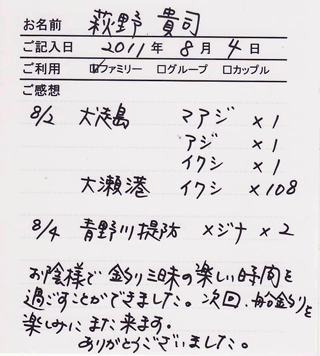 お名前 萩野 貴司
ご記入日 2011年 8月 4日
ご利用 ☑ファミリー □グループ □カップル
ご感想
8/2 犬走島 マアジ ×1
アジ ×1
イワシ ×1
大瀬港 イワシ ×108
8/4 青野川堤防 メジナ ×2
お陰様で釣り三昧の楽しい時間を
過ごすことができました。次回、船釣りを
楽しみにまた来ます。
ありがとうございました。